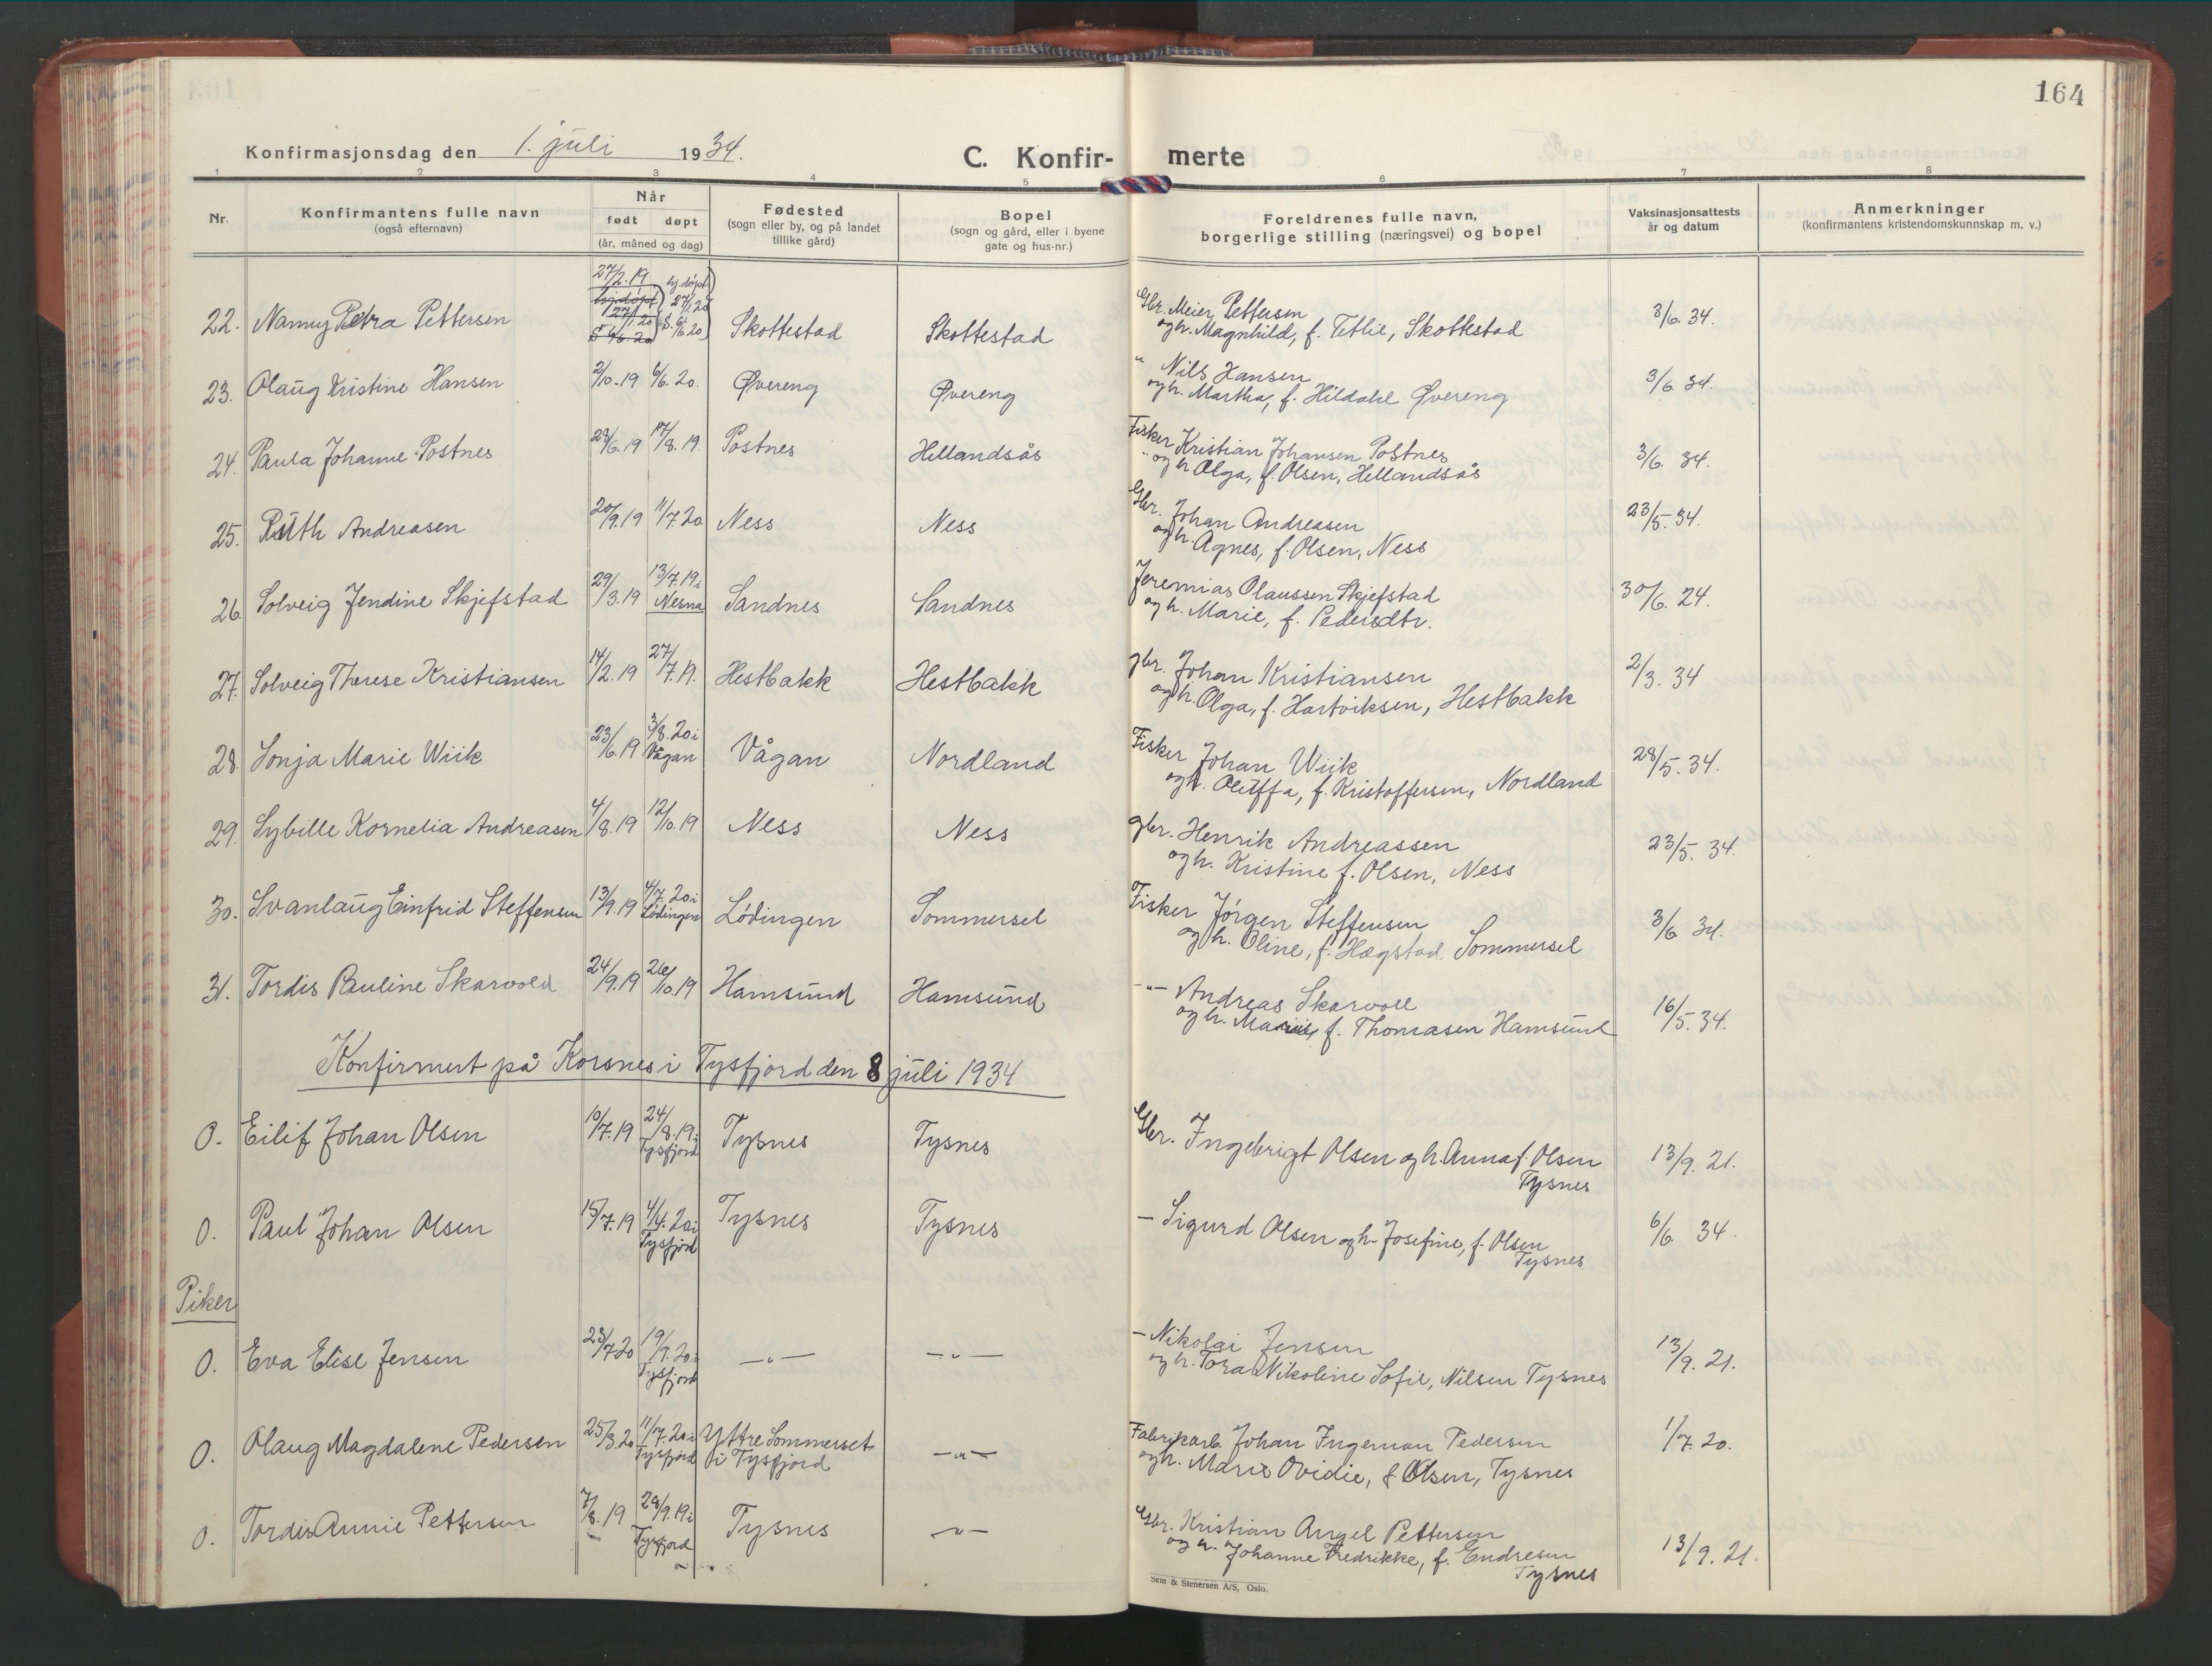 164
Konfirmasjonsdag den 1. juli 1934.
C. Konfir- merte
1 2 3 4 5 6 7 8
Nr.
Konfirmantens fulle navn
(også efternavn)
Når
født døpt
(år, måned og dag)
Fødested
(sogn eller by, og på landet
tillike gård)
Bopel
(sogn og gård, eller i byene
gate og hus-nr.)
Foreldrenes fulle navn,
borgerlige stilling (næringsvei) og bopel
Vaksinasjonsattests
år og datum
Anmerkninger
(konfirmantens kristendomskunnskap m. v.)
22. Nanny Petra Pettersen 27/2.19 hj.døpt 27/1.20 S. 6/6.20 Skottestad Skottestad Gbr. Meier Pettersen
og h. Magnhild, f. Tetlie, Skottestad 3/6. 34.
23. Olaug Kristine Hansen 2/10.19 6/6.20. Øvereng Øvereng " Nils Hansen
og h. Martha, f. Hildahl Øvereng 3/6. 34.
24. Paula Johanne Postnes 28/6.19 17/8.19. Postnes Hellandsås Fisker Kristian Johansen Postnes
og h. Olga, f. Olsen, Hellandsås 3/6. 34.
25. Ruth Andreasen 20/9.19 11/7.20 Ness Ness Gbr. Johan Andreasen
og h. Agnes, f. Olsen, Ness 23/5.34.
26. Solveig Jendine Skjefstad 29/3.19 13/7.19 i
Nesna Sandnes Sandnes Jeremias Olaussen Skjefstad
og h. Marie, f. Pedersdtr. 30/6. 24.
27. Solveig Therese Kristiansen 14/2.19 27/7.19. Hestbakk Hestbakk gbr. Johan Kristiansen
og h. Olga, f. Hartviksen, Hestbakk 2/3. 34
28. Sonja Marie Wiik 23/6.19 3/8.20 i
Vågan Vågan Nordland Fisker Johan Wiik
og h. Oluffa, f. Kristoffersen, Nordland 28/5.34.
29. Sybille Kornelia Andreasen 4/8.19 12/10.19 Ness Ness gbr. Henrik Andreassen
og h. Kristine f. Olsen, Ness 23/5. 34.
30. Svanlaug Einfrid Steffensen 13/9.19 4/7.20 i
Lødingen Lødingen Sommersel Fisker Jørgen Steffensen
og h. Oline, f. Hægstad Sommersel 3/6 34.
31. Tordis Pauline Skarvold 24/9.19 26/10.19 Hamsund Hamsund -"- Andreas Skarvoll
og h. Marie, f. Thomasen Hamsund 16/5.34.
Konfirmert på Korsnes i Tysfjord den 8 juli 1934
0. Eilif Johan Olsen 10/7.19 24/8.19 i
Tysfjord Tysnes Tysnes Gbr. Ingebrigt Olsen og h. Anna f. Olsen
Tysnes 13/9. 21.
0. Paul Johan Olsen 15/7.19 4/4.20 i
Tysfjord Tysnes Tysnes - Sigurd Olsen og h. Josefine, f. Olsen
Tysnes 6/6 34.
Piker
0. Eva Elise Jensen 23/7 20 19/9.20 i
Tysfjord -"- -"- - Nikolai Jensen
og h. Tora Nikoline Sofie, Nilsen Tysnes 13/9. 21.
0. Olaug Magdalene Pedersen 25/3.20 11/7.20 i
Tysfjord Yttre Sommerset
i Tysfjord -"- Fabrikarb. Johan Ingeman Pedersen
og h. Marie Ovidie, f. Olsen, Tysnes 1/7. 20.
0. Tordis Annie Pettersen 7/8.19 28/9.19 i
Tysfjord Tysnes -"- Gbr. Kristian Angel Pettersen
og h. Johanne Fredrikke, f. Endresen
Tysnes 13/9. 21.
Sem & Stenersen A/S, Oslo.